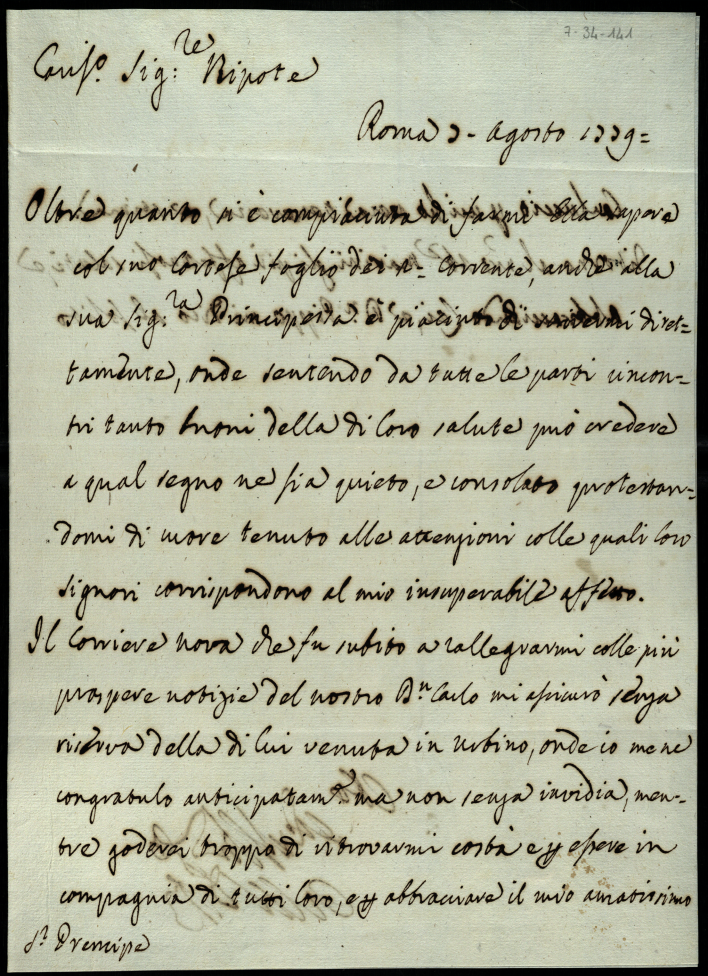 7-34-141
Cariss.o Sig:re Nipote
Roma 3- Agosto 1739=
Oltre quanto si è compiaciuta di farmi Ella sapere
col suo Cortese foglio dei p.= Corrente, anche alla
sua Sig:ra Principessa è piaciuto di scrivermi diret=
tamente, onde sentendo da tutte le parti rincon=
tri tanto buoni della di loro salute può credere
a qual segno ne sia quieto, e consolato protestan=
domi di cuore tenuto alle attenzioni colle quali loro
signori corrispondono al mio insuperabile affetto.
Il Corriere che fu subito a rallegrarmi colle più
prospere notizie del nostro D.n Carlo mi assicurò senza
riserva della di lui venuta in Urbino, onde io me ne
congratulo anticipatam.e ma non senza invidia, men=
tre goderei troppo di ritrovarmi costà e p essere in
compagnia di tutti loro, e p abbracciare il mio amatissimo
S.r Prencipe